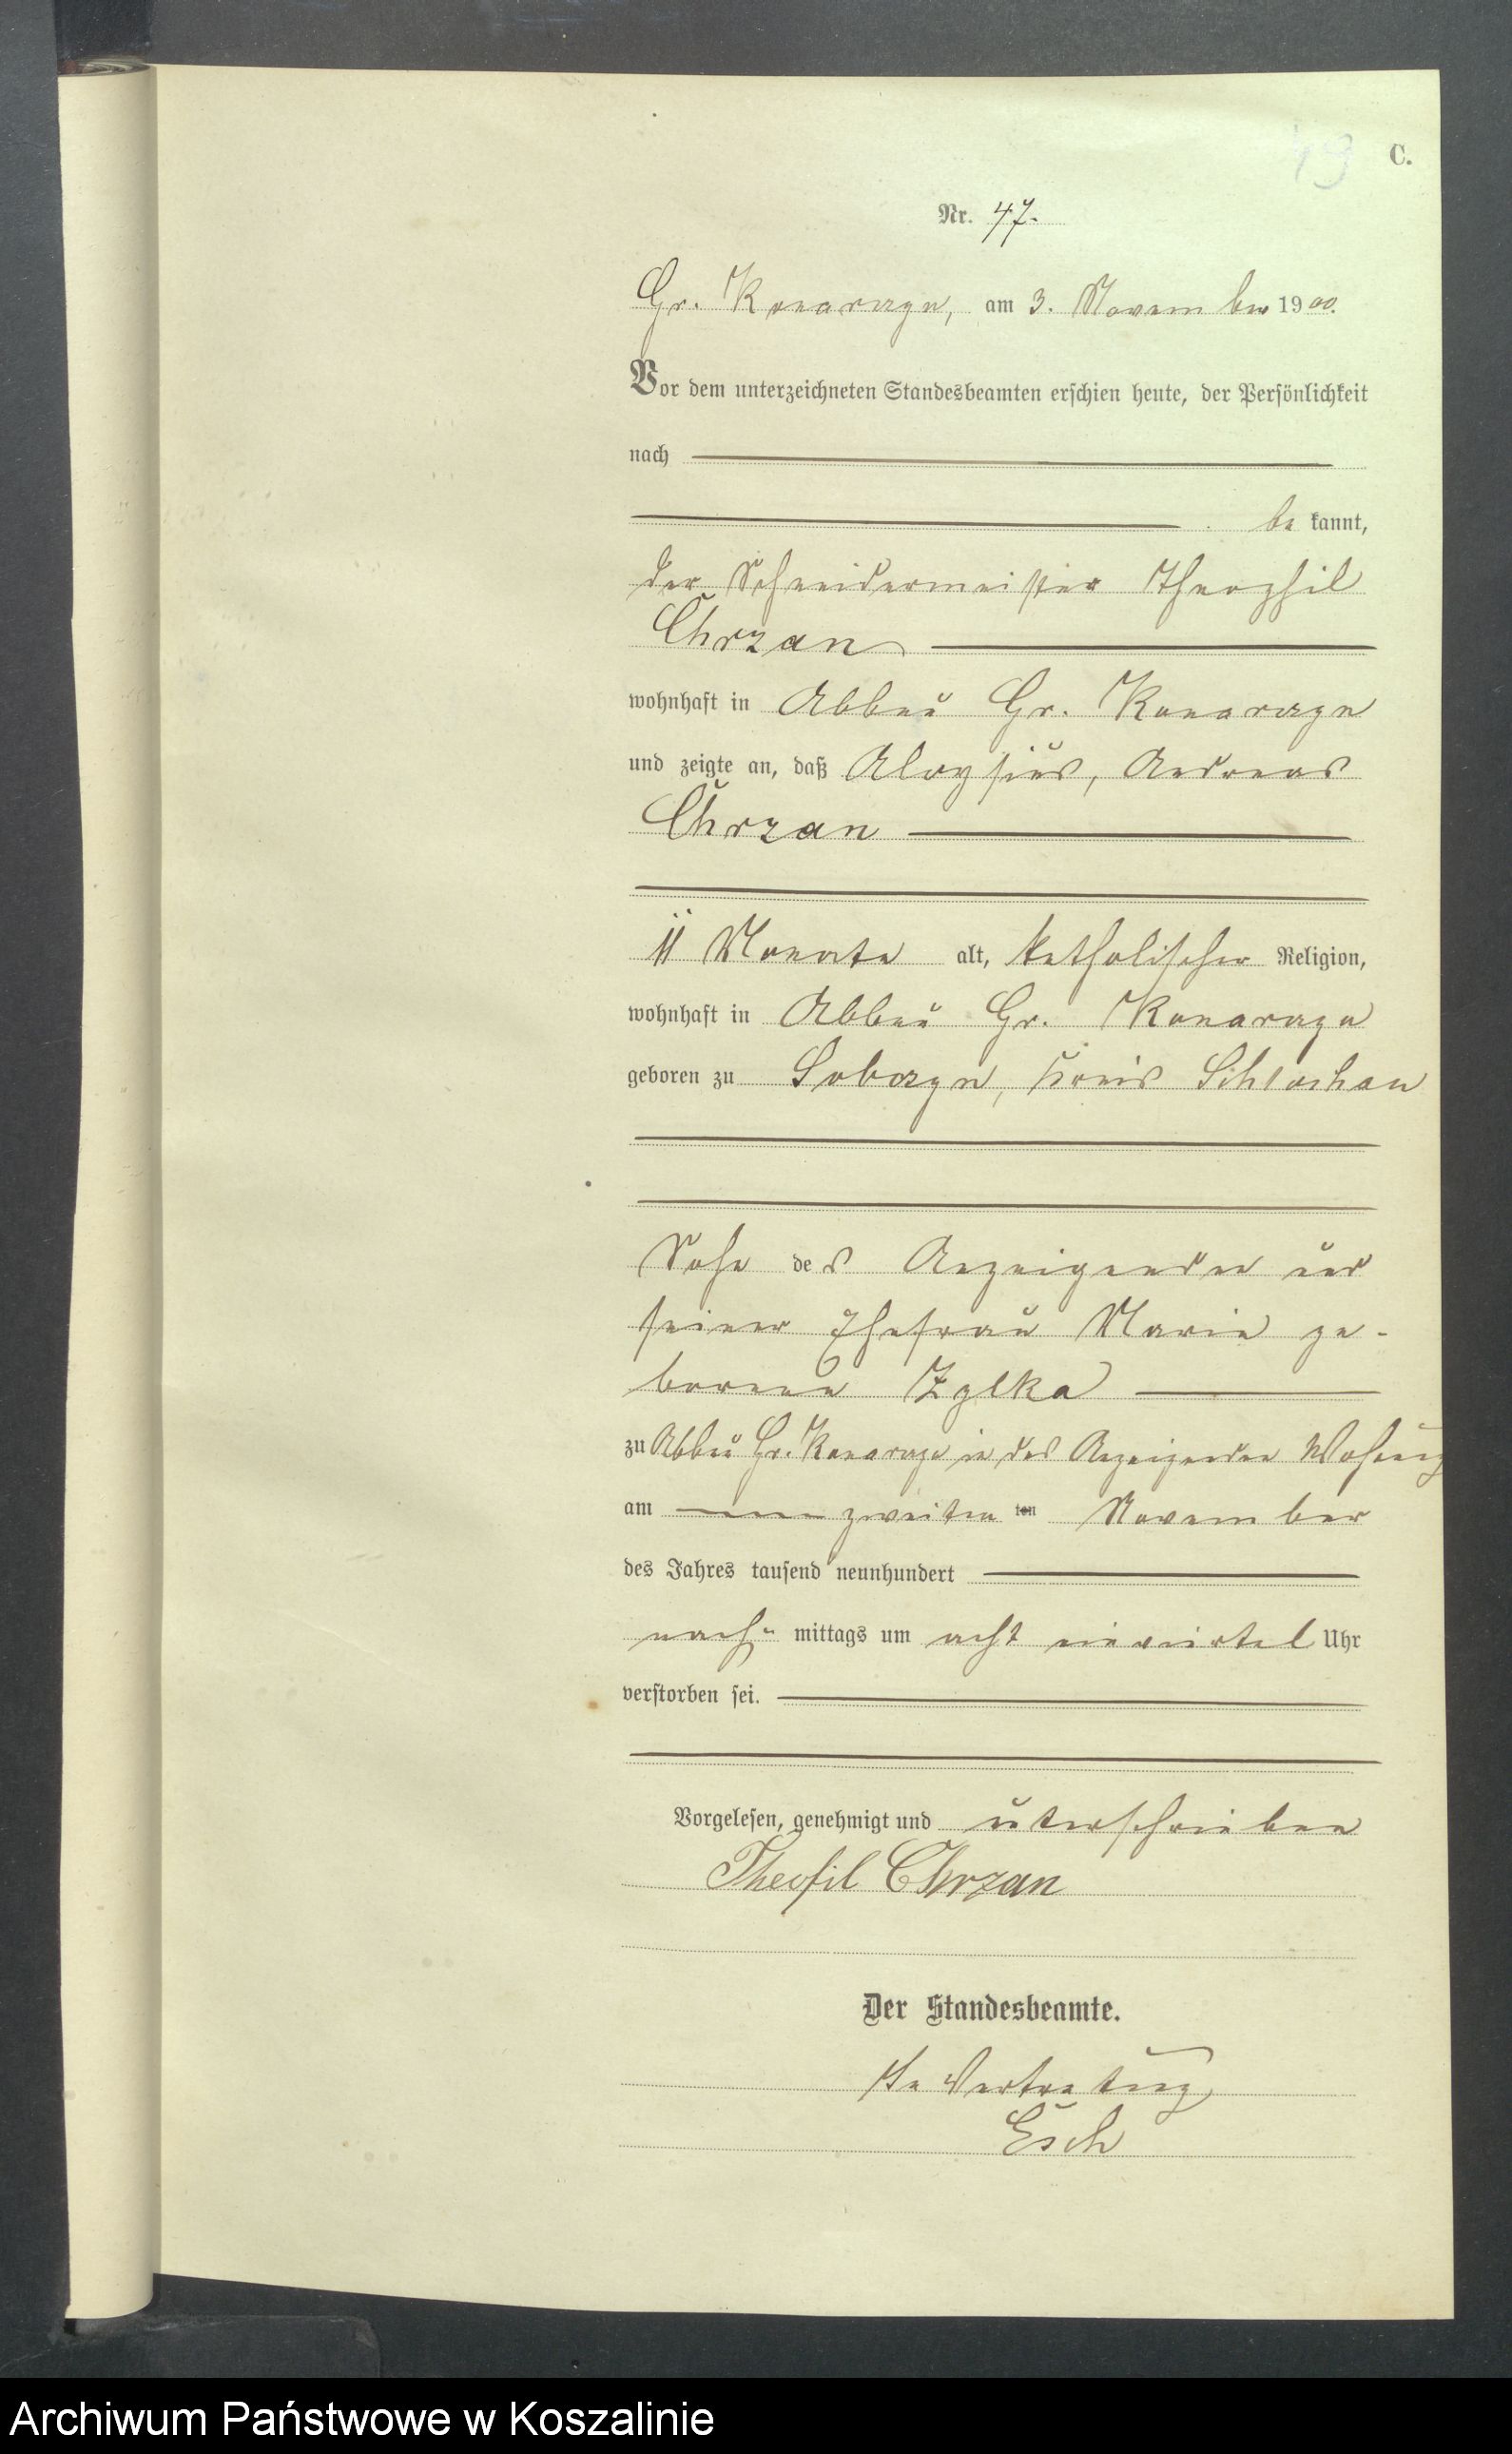 49 C.
Nr. 47.
Gr. Konarczyn, am 3. November 1900.
Vor dem unterzeichneten Standesbeamten erschien heute, der Persönlichkeit
nach
be kannt,
der Schneidermeister Theophil
Chrzan
wohnhaft in Abbau Gr. Konarczyn
und zeigte an, daß Aloysius, Andreas
Chrzan
11 Monate alt, katholischer Religion,
wohnhaft in Abbau Gr. Konarczyn
geboren zu Kreis Schlochau
Sohn des Anzeigenden und
seiner Ehefrau Marie ge-
borene
zu Abbau Gr. Konarczyn in des Anzeigenden Wohnung
am zweiten ten November
des Jahres tausend neunhundert
nach- mittags um acht einviertel Uhr
verstorben sei.
Vorgelesen, genehmigt und unterschrieben
Theofil Chrzan
Der Standesbeamte.
In Vertretung
Esch
Archiwum Państwowe w Koszalinie